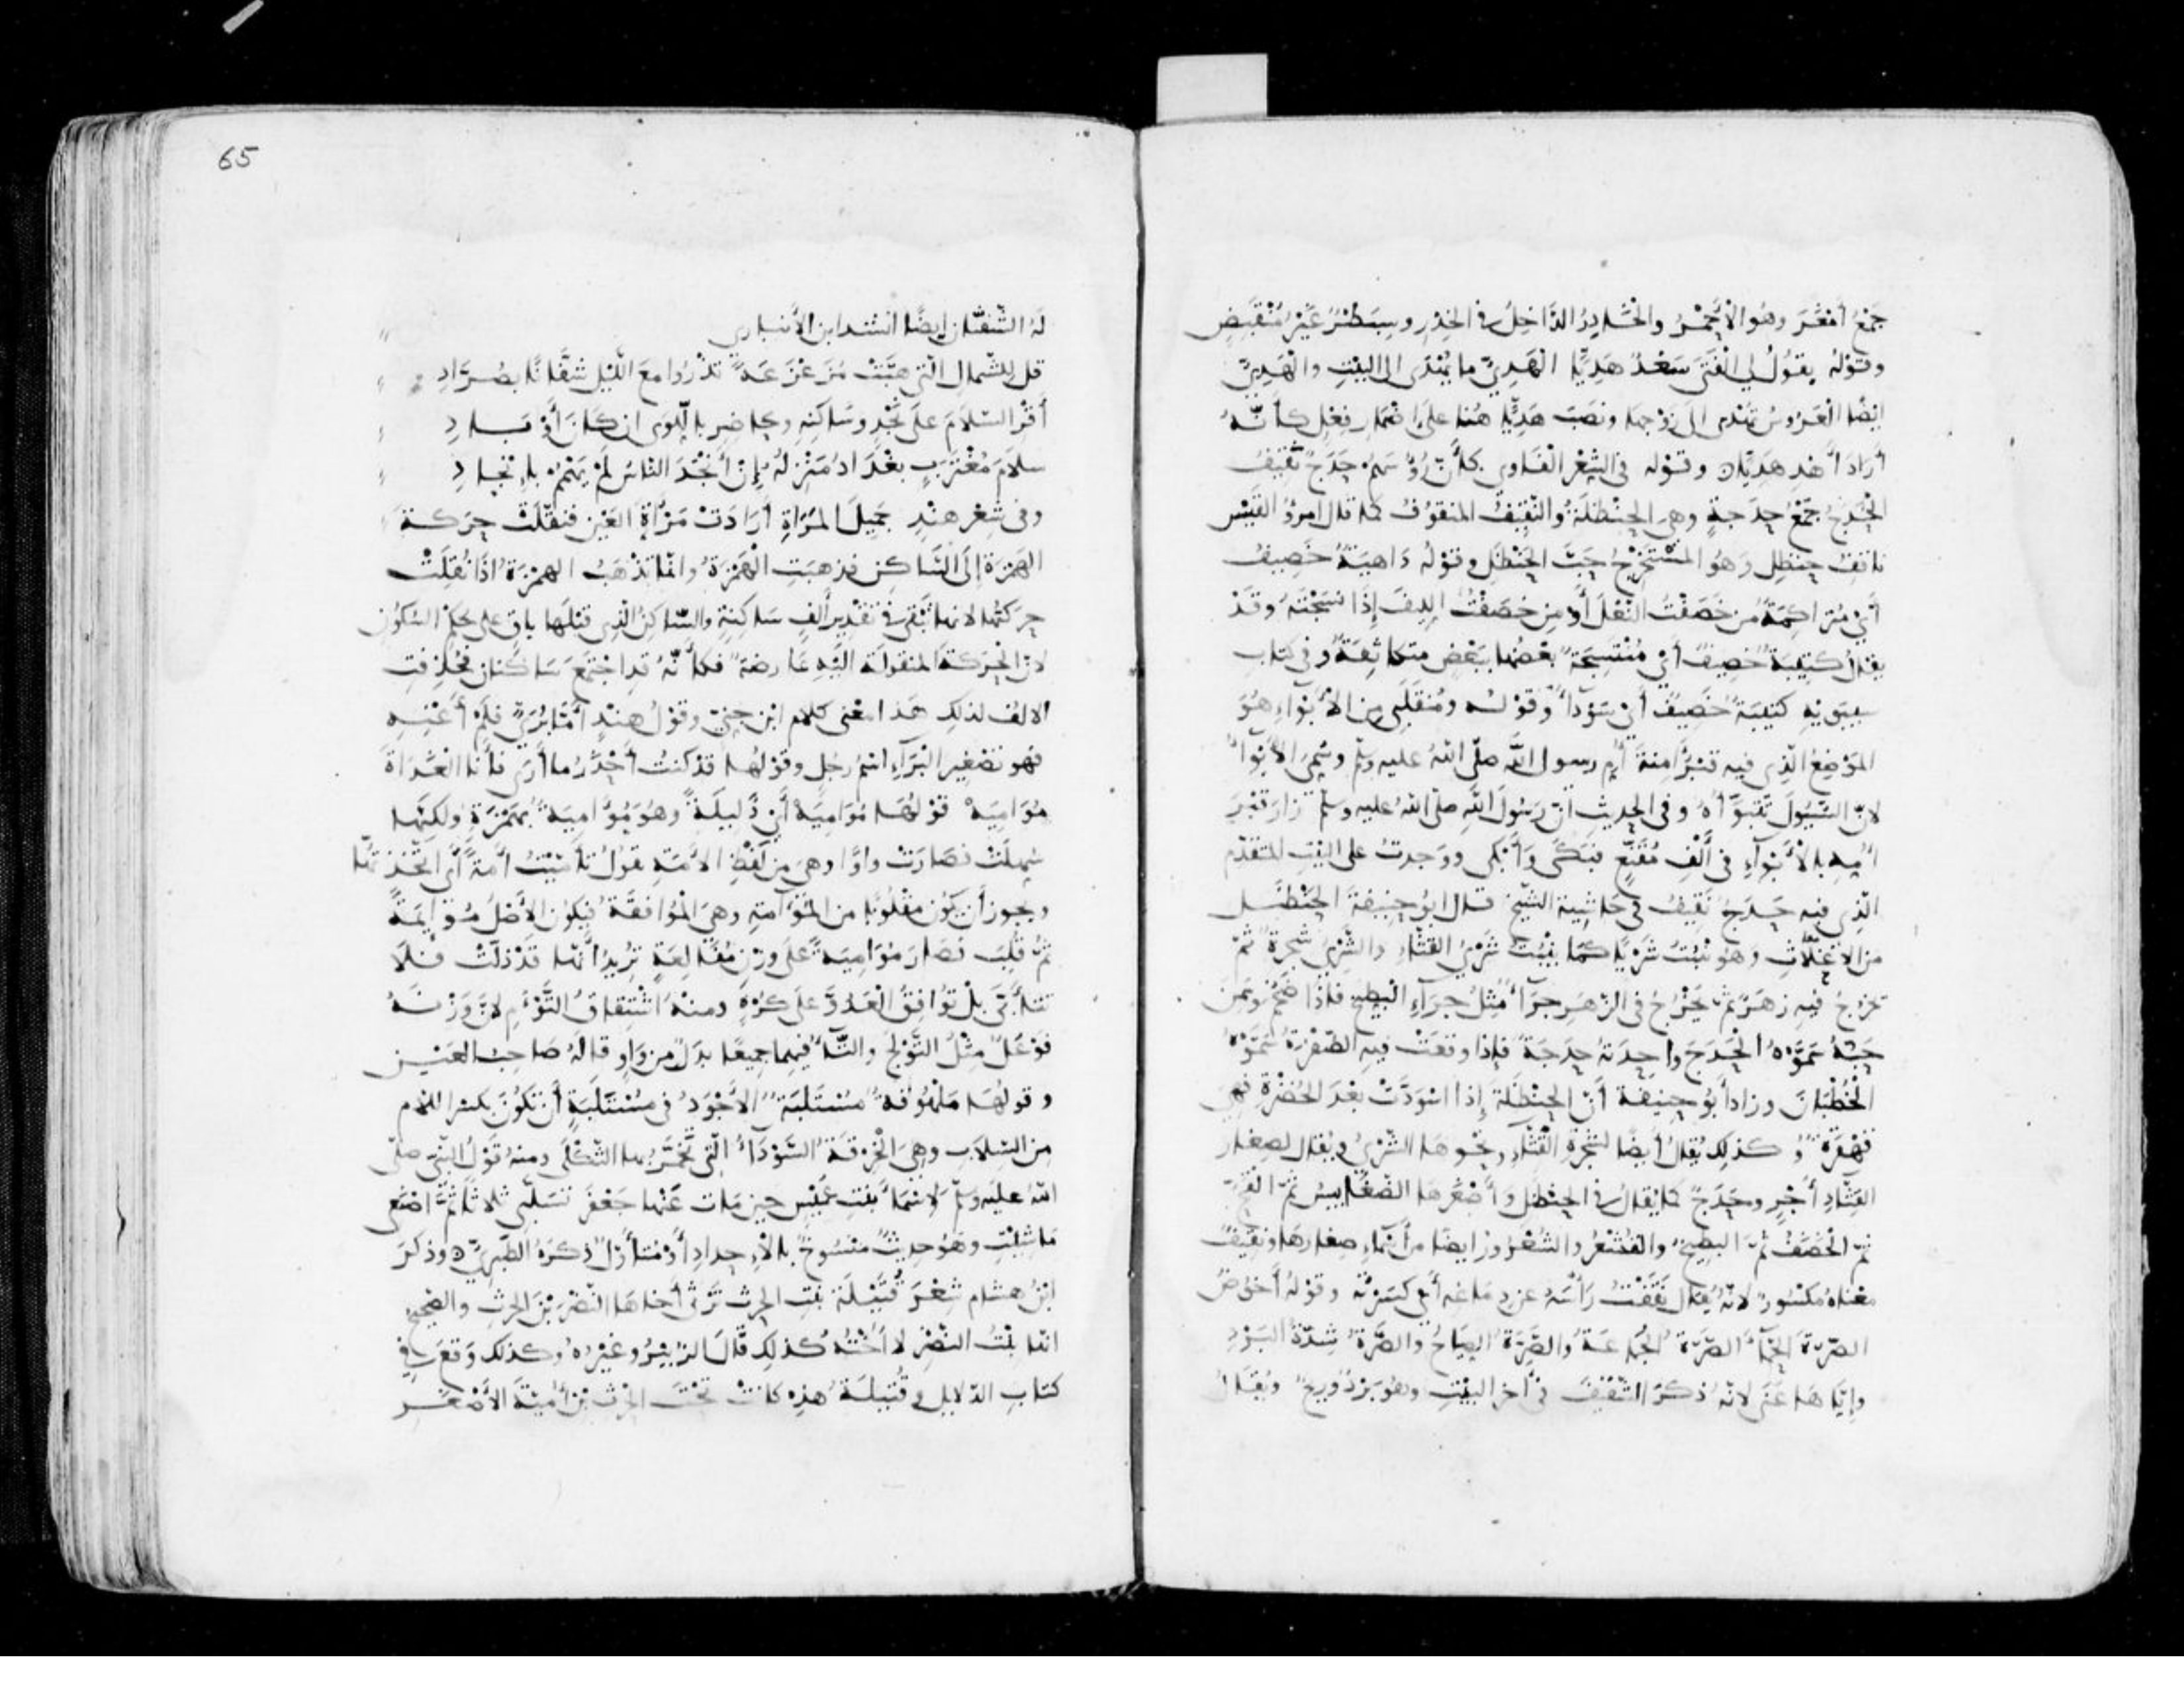 جَمْعُ أمْغَرَ وهُوَ الأَحْمَرُ والخَادِرُ الدَّاخِلُ في الخِدْرِ وسِبَطْرٌ غَيْرُ مُنْقَبِضٍ
وقوْلهُ يقُوُلُ لي الْفَتَى سَعْدٌ هَدِيًّا الْهَدِيُّ ما يُهْدَى الى البَيْتِ والْهَدِيُّ
ايضًا الْعَرُوسُ تُهْدى الى زَوْجِهَا ونَصَبَ هَدِيًّا هُنا علَى اضْمَارِ فِعْلٍ كأنَّهُ
أرَادَ اهْدِ هَدِيًّا وقوْله في الشِعْرِ الفَاوِيّ كأنّ رُؤُسَهُمْ حَدَجٌ نَقِيفُ
الْحَدَجُ جَمْعُ حَدَجَةٍ وهي الحَنْظَلَةُ والنَّقِيفُ المنقوُفُ كما قال امرؤُ القَيْسِ
ناقِفُ حنظلِ وَهُوَ المُسْتَخْرِجُ حَبَّ الحَنْظَلِ وقوْلُهُ دَاهِيَةٌ خَصِيفُ
أَيْ مُتَراكِمَةٌ من خَصَفْتُ النَّعْلَ أَوْ مِن خَصَفْتُ اللِيفَ إذَا نَسَجْتَهُ وقَدْ
يقالُ كتِيبَةٌ خَصِيفٌ أَيْ مُنْتَسِجَةٌ بَعْضُها ببَعْضٍ متكاثِفَةٌ وفي كتابِ
سِيبَوَيْهِ كتِيبَةٌ خَصِيفٌ أيْ سَوْدَآءُ وَقوْلُه ومُنقَلَبِي مِنَ الأبْوَآءِ هُوَ
المَوْضِعُ الَّذِي فيه قَبْرُ امنةَ أُمّ رسولِ اللَّه صلّى اللهُ عليه وسلّم وسُمّيَ الأبْوآءُ
لأنّ السُّيُولَ تَتَبَوَّأهُ وفي الحدِيثِ انّ رَسُولَ اللَّهِ صلى اللهُ عليه وسلّم زارَ قبْرَ
اُمِّهِ بالأَبْوَآءِ في أَلْفِ مُقَنَّعٍ فبَكَى وَأبْكى ووَجدتُ على البَيْتِ المتقدّم
الّذِي فيه حَدَجٌ نَقِيفُ في حَاشِيةِ الشّيْخِ قال ابوُ حَنِيفةَ الحَنْظَل
من الاغْلاثِ وَهُوَ يَنْبُتُ شَرْيًا كمَا يَنْبُتُ شَرْيُ القثّاءِ والشَّرْيُ شجرةٌ ثمّ
يخرُجُ فيهِ زهَرٌ ثمّ يَخْرُجُ في الزّهَرِ جِرَآءٌ مِثْلُ جِرَآءِ البطيخِ فاذا ضَخُمَ وسَمِنَ
حَبّهُ سَمَّوْهُ الْحَدَجَ واحِدَتهُ حَدَجَةٌ فاذا وقعَتْ فيهِ الصُّفْرَةُ سَمَّوْهُ
الْخُطْبَانَ وزادَ أبُو حنِيفَة أنّ الحَنْظَلَةَ إِذا اسْوَدَّتْ بعْدَ الخُضْرَةِ فهِيَ
قَهْقَرَةٌ وَ كذلِك يُقالُ أَيضًا لشجرةِ القِثّاءِ ونحْوِهَا الشّرْيُ ويُقال لصِغار
القِثّاءِ أَجْرٍ وحَدَجٌ كما يُقالُ في الحَنْظَلِ وَأَصْغَرُهَا الضَّغَابِيسُ ثمّ القُحُّ
ثمّ الْخَضَفُ ثُمّ البطِيخُ والقُشْعُرُ والشّعْرُورُ ايضًا من أَسْمآءِ صغارهَا ونَقِيفٌ
مَعْناهُ مكْسُورٌ لانّهُ يُقال نَقَفْتُ رَأْسَهُ عن دِمَاغِه أي كَسَرْتُه وقوْلهُ أَخُوضُ
الصّرّةَ الحَمّآءَ الصّرّة الجُماعَةُ والصَّرَّة الصِيَاحُ والصَّرّةُ شِدّةُ البَرْدِ
وإِيّاهَا عَنَى لانّهُ ذكَرَ الشّفيفَ في أخر البيْتِ وهُوَ بَرْدٌ وَرِيحٌ ويُقَالُ
65
لَهُ الشَّفّان ايضًا انشد ابن الأنباري
قل للشَّمالِ الّتي هبَّتْ مُزَعْزَعَةً تَذْرُوا معَ اللَّيْلِ شفّانًا بصُرَّادِ
أقْرَ السّلامَ علَى نَجْدٍ وسَاكنِهِ وحاضِرٍ باللّوَى ان كَانَ أوْ بَادِ
سلامَ مُغْتَرِبٍ بغْدَادُ مَنْزِلُهُ إِنْ أَنْجَدَ النّاسُ لَمْ يَهْمُمْ بإِنْجادِ
وفي شِعْرِ هِنْدٍ جَمِيلَ المَرَاةِ أَرَادَتْ مَرْآةَ العَيْنِ فنقَلَتْ حَرَكةَ
الهَمْزَةِ إلَى السّاكِنِ فذهبَتِ الْهَمْزَةُ وانّما تذْهَبُ الهمْزَةُ اذَا نُقِلَتْ
حرَكتُها لانها تبْقَى في تقْدِيرِ أَلِفٍ سَاكِنةٍ والسّاكِنُ الّذِي قبْلَها باقٍ على حُكْمِ السُكُوْنِ
لانّ الْحَرَكَةَ المنقولَةَ الَيْهِ عَارضَةٌ فكأنّهُ قدِ اجْتَمَعَ سَاكِنانِ فحُذِفتِ
الالِفُ لذلِك هَذا معْنى كلام ابْنِ جِنّي وقوْلُ هِنْدٍ أَمّا بُرَيٌّ فَلَمْ أَعْنِهِ
فهو تصْغِيرُ البَرَآءِ اسْمُ رجلٍ وقوْلها قد كنتُ أَحْذَرُ ما أرَى فأنا الغَدَاةَ
مُوَامِيَهْ قوْلها مُوَامِيَهْ أَيْ ذَلِيلَةٌ وهُوَ مُؤَامِيَةٌ بهَمْزَةٍ ولكنّها
سُهّلَتْ فصَارَتْ واوًا وهِيَ من لَفْظِ الأَمَةِ تقول تأمّيْتُ أَمَةً أَي اتّخذتها
ويجوز أن يَكُون مقْلُوبًا من المُوَآمةِ وهيَ الْمُوَافَقَةُ فيكُونُ الأصْلُ مُوَايِمَةً
ثمّ قُلِبَ فصَارَ مُوَامِيَةً عَلَى وزْنِ مُفَالِعَةٍ تُرِيدُ أنّها قَدْ ذلّتْ فلَا
تتأبّى بلْ تُوَافِقُ الْعَدُوَّ علَى كُرْهٍ ومنْهُ اشْتِقاقُ التَّوْءَمِ لانّ وَزْنَهُ
فوْعَلٌ مِثْلُ التَّوْلَجِ والتّاءُ فيهِما جميعًا بدَلٌ من وَاوٍ قالهُ صَاحِبُ العَيْنِ
وقولها مَلهُوفة مُسْتَلِبَة الأَجْوَدُ في مُسْتَلِبَةٍ أنْ تكُوْنَ بكسْرِ اللامِ
من السِّلابِ وهِيَ الْخِرْقَةُ السَّوْدَآءُ الّتِي تَخَمَّرُ بها الثّكْلَى ومنهُ قوْلُ النّبيّ صلّى
اللهُ عليْه وسلّم لاسْمَآءَ بنْتِ عُمَيْسٍ حينَ مَات عَنْها جَعْفَرٌ تَسَلّبِي ثلاثًا ثُمّ اصْنَعِي
مَا شِئْتِ وهُوَ حدِيثٌ منْسُوخٌ بالأِحدادِ أَوْ مُتَأَوَّلٌ ذكرَهُ الطَّبَرِيّ وذكَرَ
ابْنُ هشام شِعْرَ قُتَيْلَةَ بنْتِ الحرث تَرْثي أَخاهَا النّضْرَ بْنَ الحرثِ والصّحِيحُ
انّها بنْتُ النّضْرِ لا أخْتُهُ كذلِك قَالَ الزّبَيْرُ وغيْرُهُ وكذلك وَقَعَ في
كتابِ الدّلايلِ وقُتَيْلَةُ هذِهِ كانَتْ تحْتَ الحرثِ بْنِ أُمَيّةَ الأَصْغَرِ